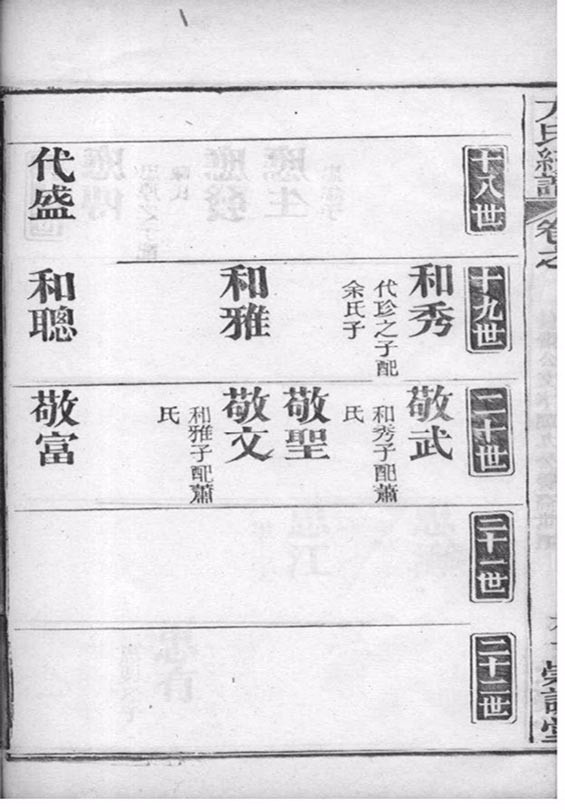 十八世
代盛
十九世
和秀
代珍之子配
余氏子
和雅
和聰
二十世
敬武
和秀子配蕭
氏
敬聖
敬文
和雅子配蕭
氏
敬富
二十一世
二十二世